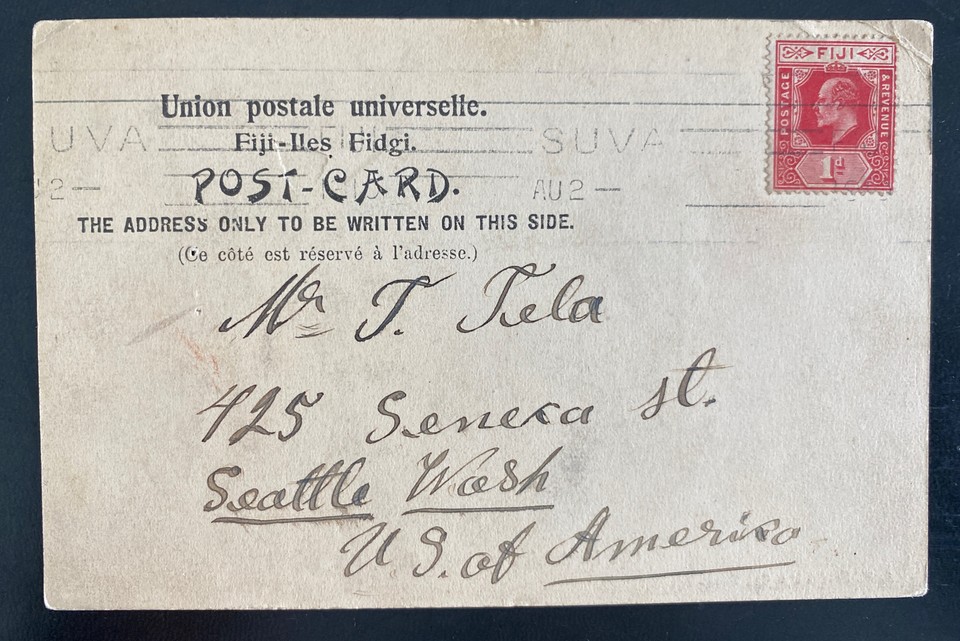 FIJI
POSTAGE & REVENUE
1d
UVA SUVA
Union postale universelle.
Fiji-Iles Fidgi.
2— AU 2 —
POST-CARD.
THE ADDRESS ONLY TO BE WRITTEN ON THIS SIDE.
(Ce côté est réservé à l'adresse.)
Mr T. Tela
425 Seneca st.
Seattle Wash
U.S. of America